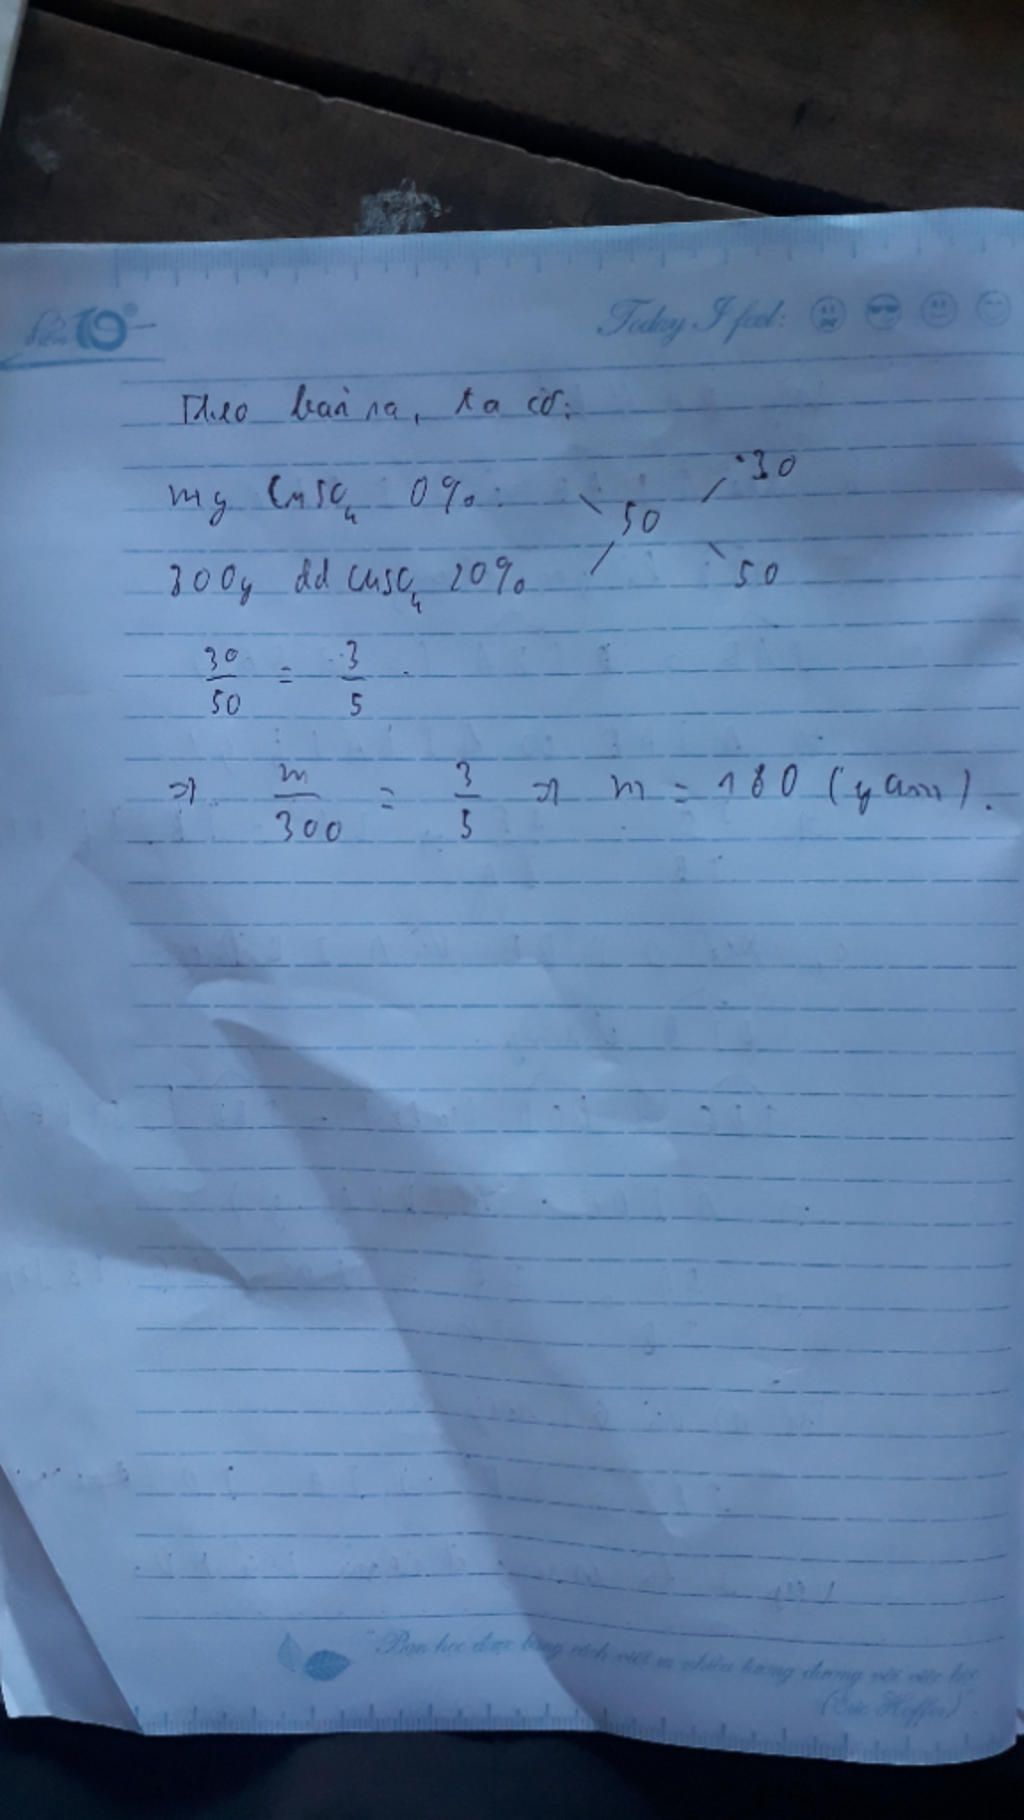 Điểm 10
Today I feel:
Theo bài ra, ta có:
mg CuSO4 0%: 30
50
300g dd CuSO4 20% 50
30/50 = 3/5
=> m/300 = 3/5 => m = 180 (gam).
"Bạn học được bằng cách viết ra nhiều tương đương với việc học"
(Eric Hoffer)